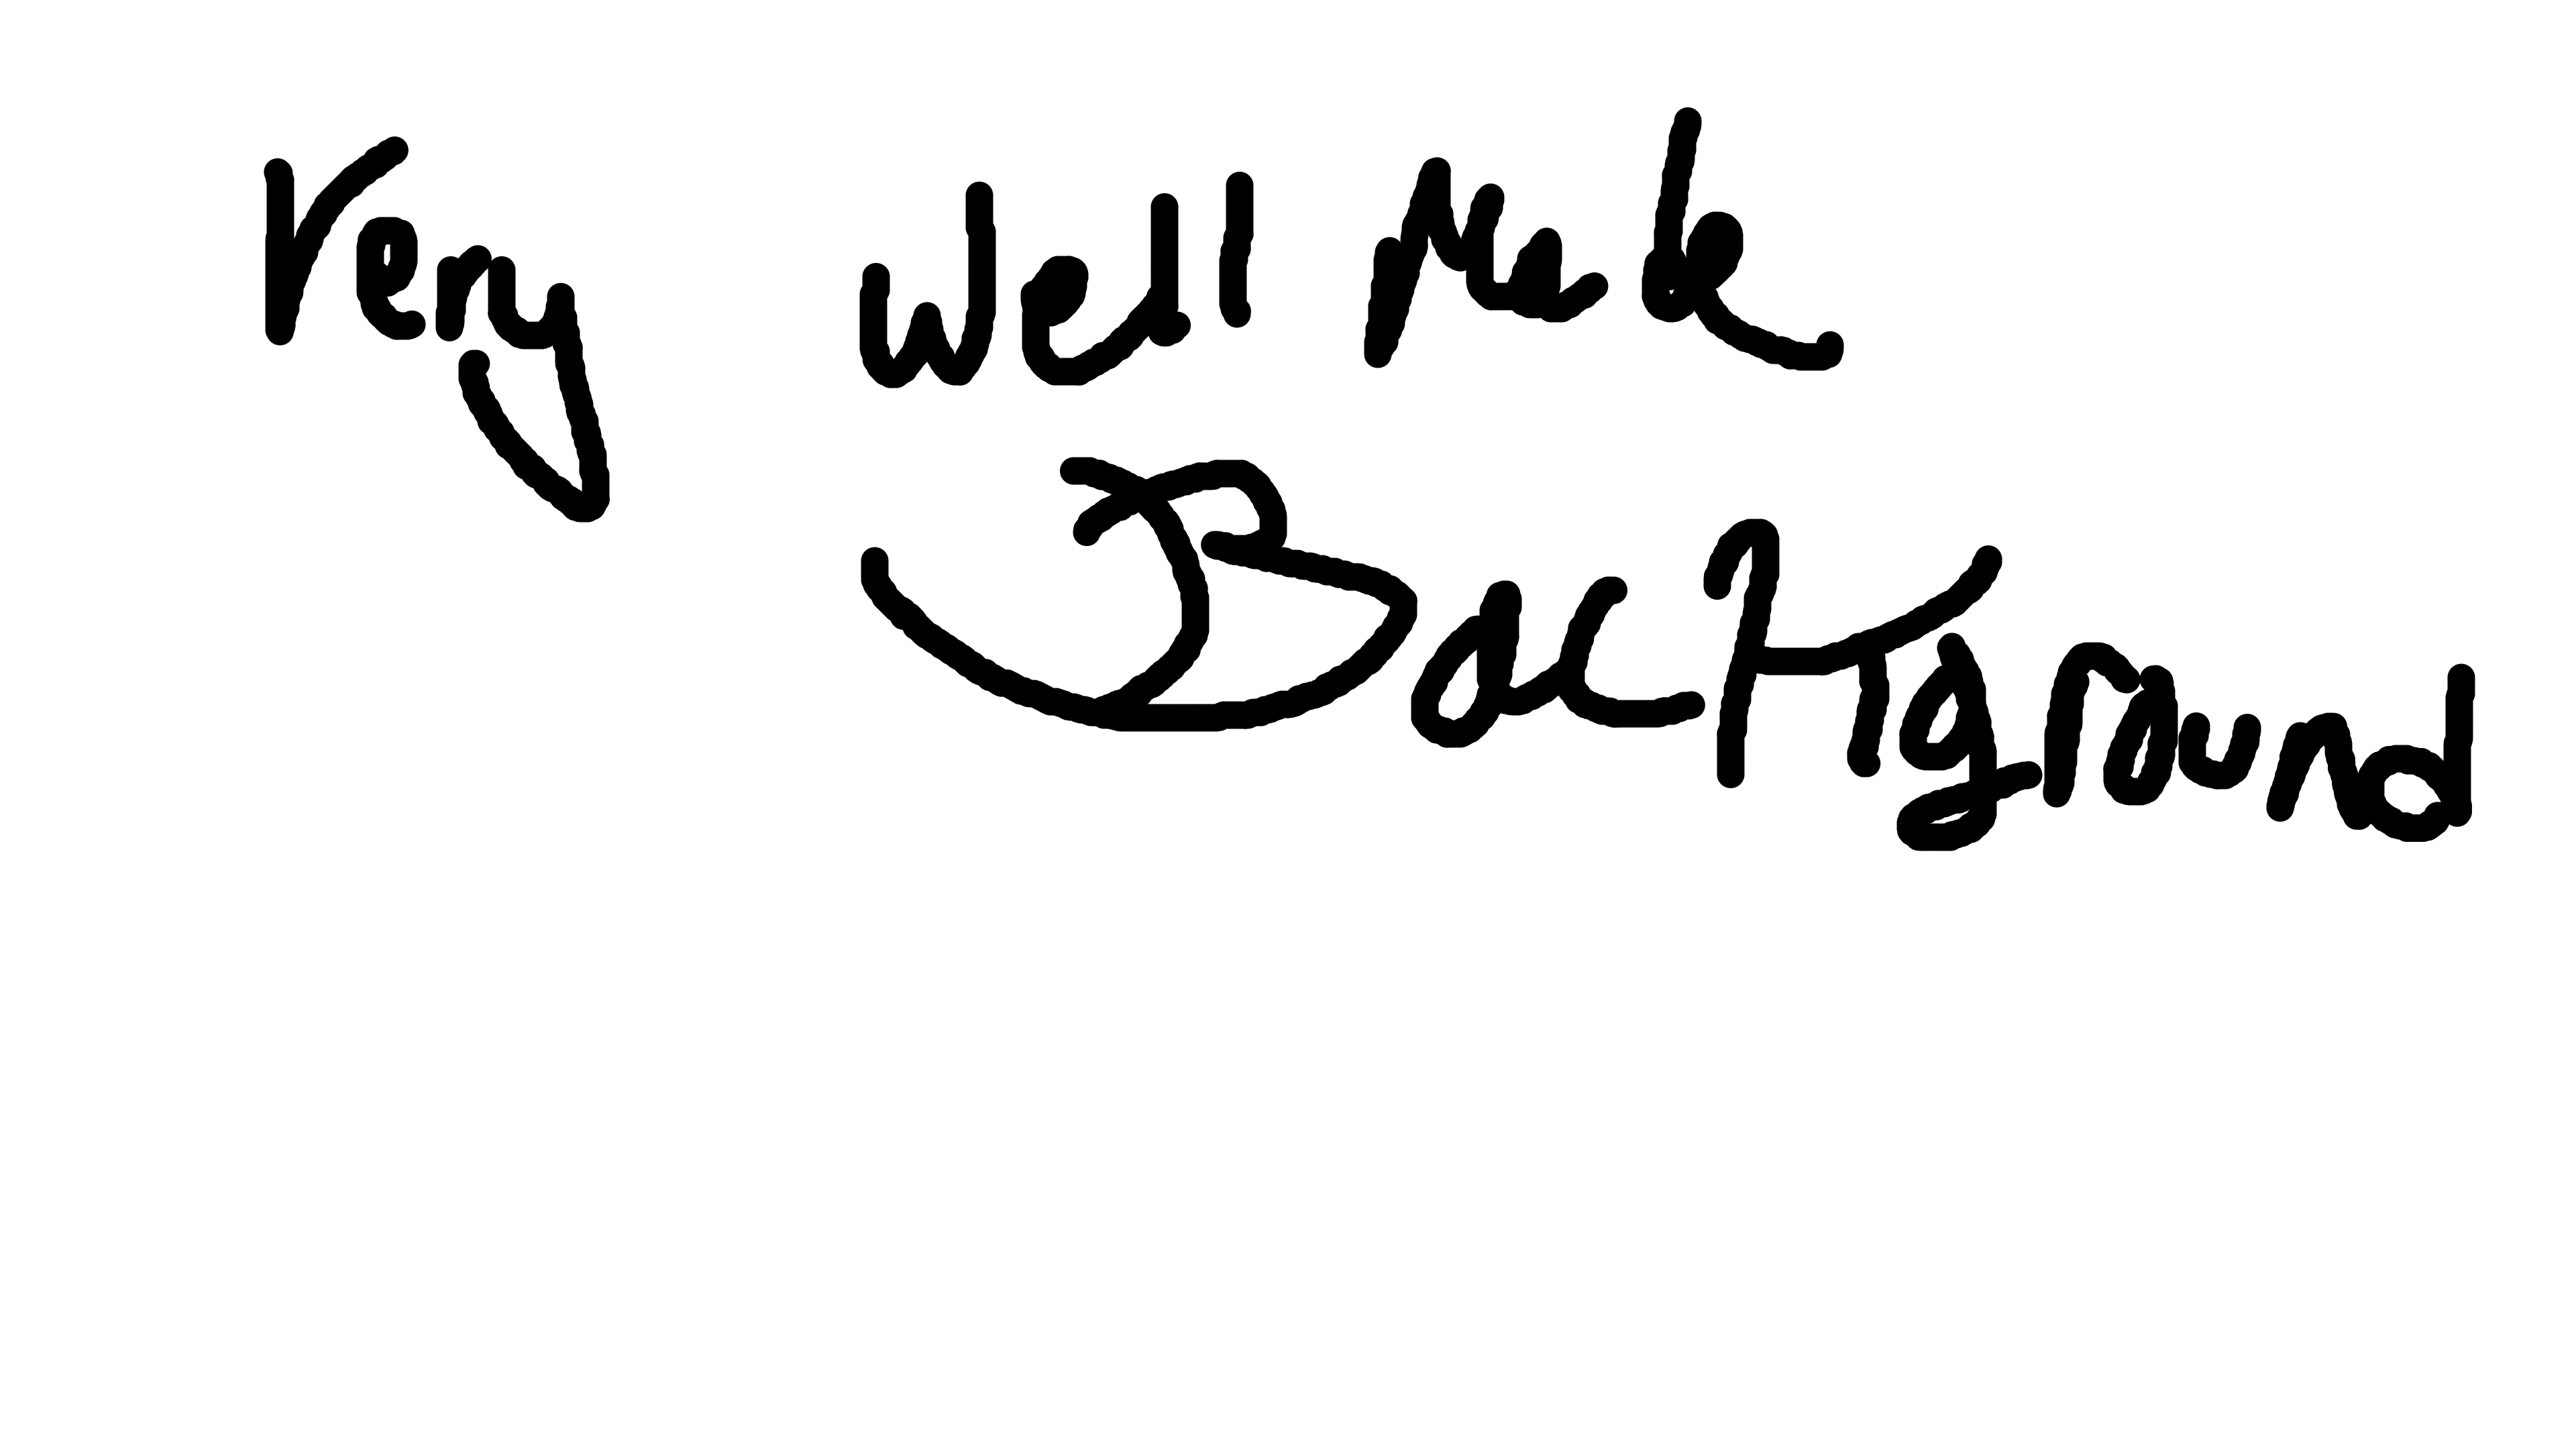 Very Well Made
Background